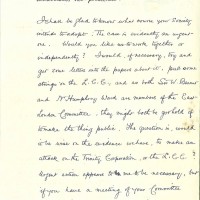 I shall be glad to know what course your Society
intends to adopt. The case is evidently an urgent
one. Would you like us to work together or
independently? I would, if necessary, try and
get some letters into the papers about it, pull some
strings on the L.C.C., and as both Sir W.
and Mr Humphry Ward are members of the
London Committee, they might both be got hold of
to make the thing public. The question is, would
to be wise on the evidence where, to make an
attack on the Trinity Corporation, or the L.C.C.?
Urgent action appears to me to be necessary, but
if you have a meeting of your Committee